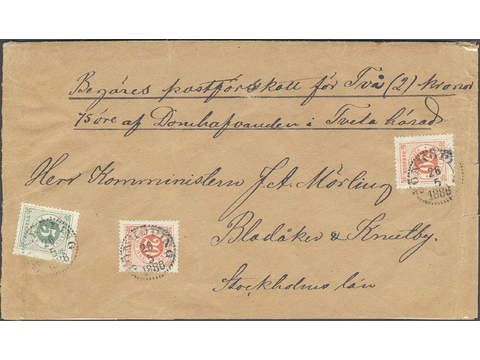 Begäres postförskott för Två (2) kronor
75 öre af Domhafvanden i Tveta härad
Herr Komministern J. A. Mörling
Bladåker & Knutby.
Stockholms län
20
26
5
1886
5
20
1886